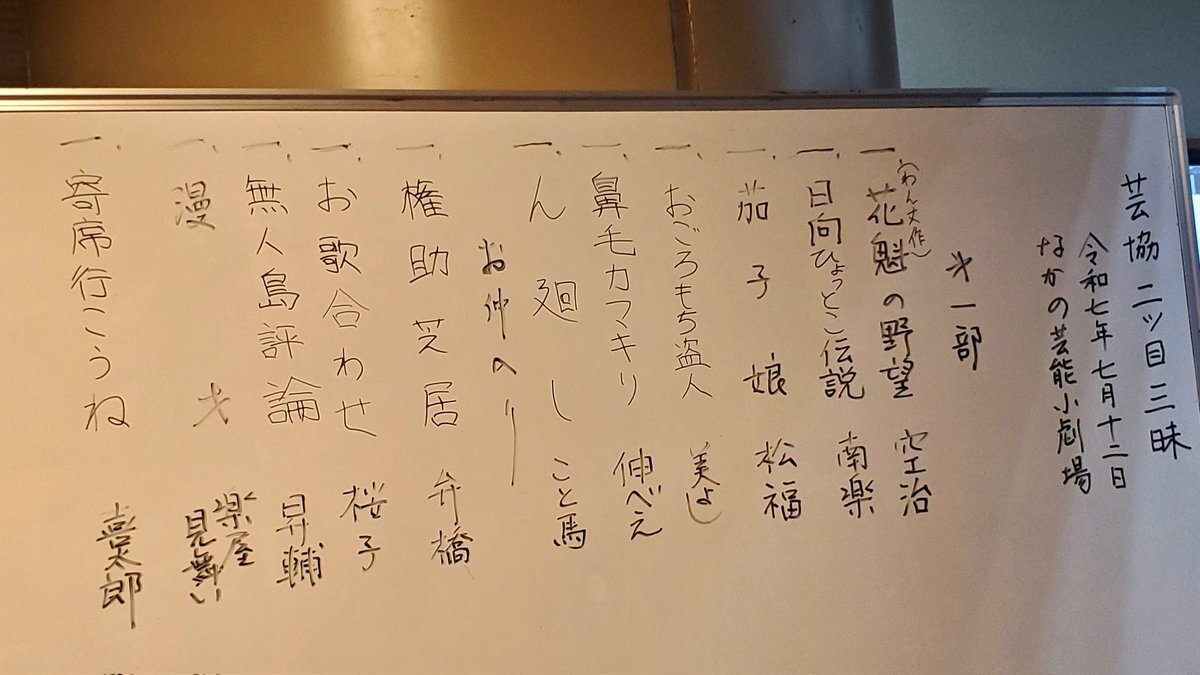 芸協二ツ目三昧
令和七年七月十二日
なかの芸能小劇場
才一部
一、花魁の野望 空治
(わん丈作)
一、日向ひょっとこ伝説 南楽
一、茄子娘 松福
一、おごろもち盗人 美よし
一、鼻毛カマキリ 伸べえ
一、ん廻し こと馬
お仲入り
一、権助芝居 弁橋
一、お歌合わせ 桜子
一、無人島評論 昇輔
一、漫才 楽屋見舞い
一、寄席行こうね 喜太郎